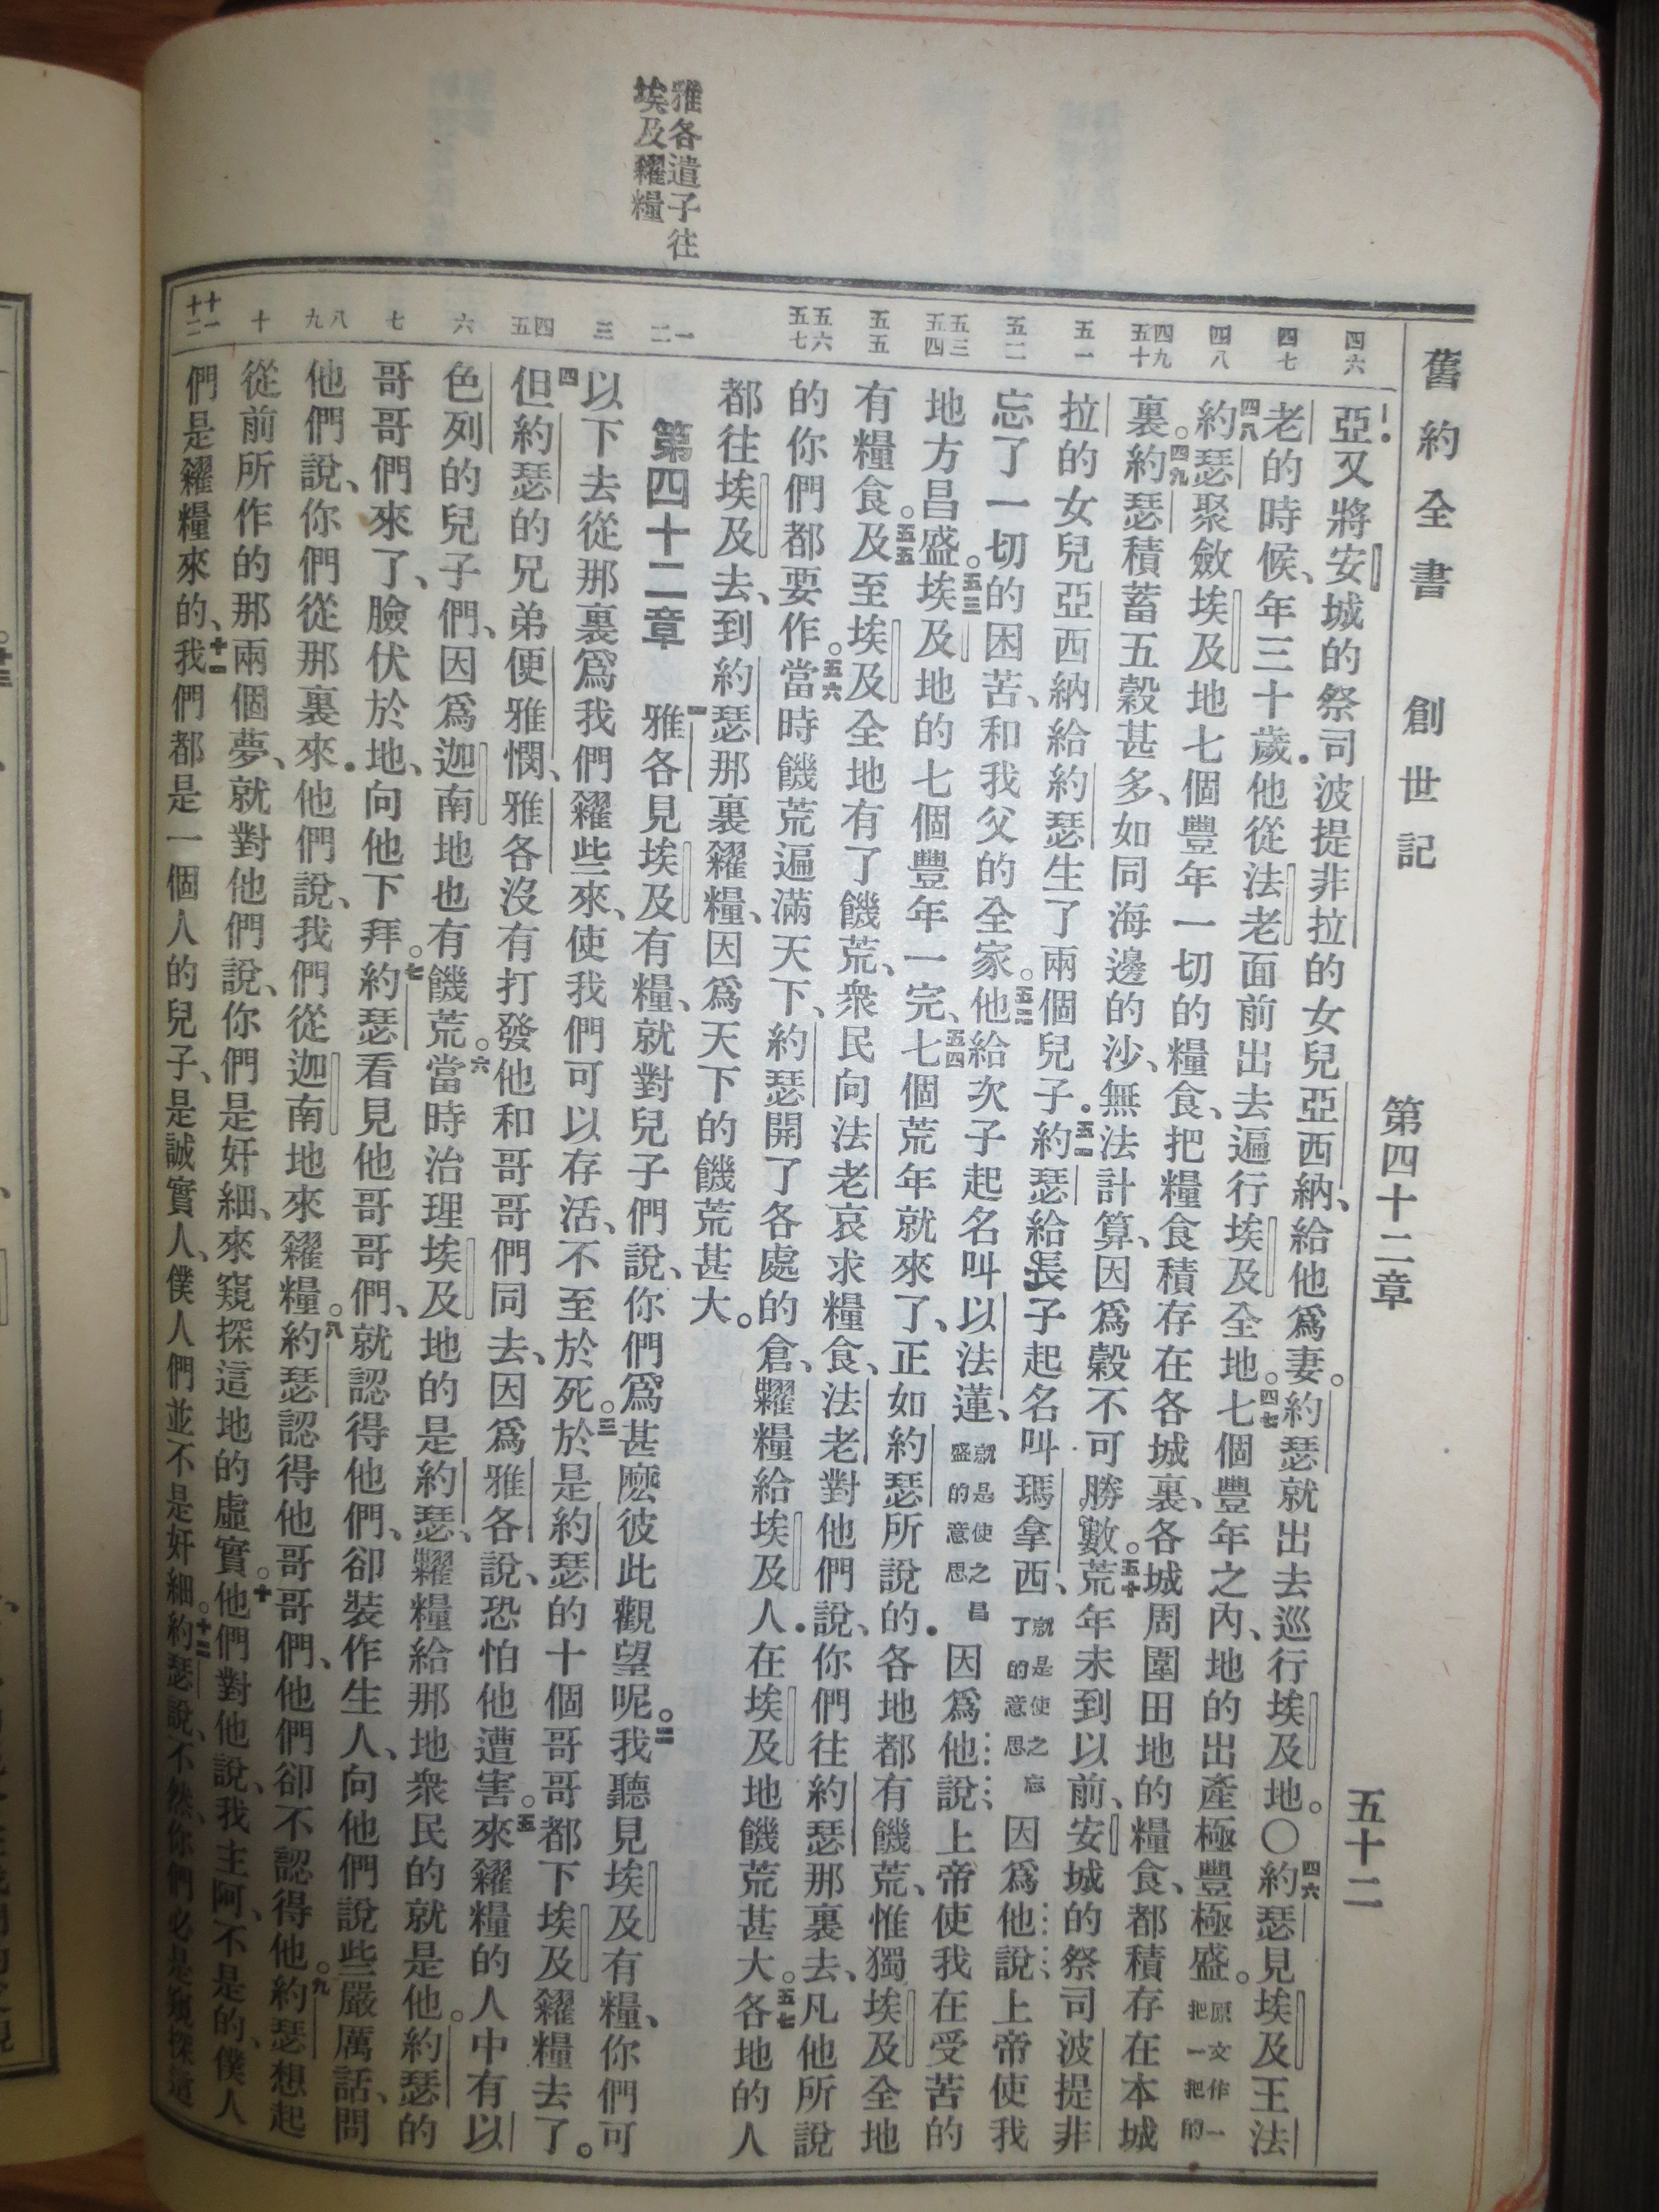 舊約全書 創世記 第四十二章 五十二
雅各遣子往
埃及糴糧
四六
四七
四八
四九
五十
五一
五二
五三
五四
五五
五六
五七
一
二
三
四
五
六
七
八
九
十
十一
十二
亞又將安城的祭司波提非拉的女兒亞西納、給他爲妻。約瑟就出去巡行埃及地。〇四六約瑟見埃及王法
老的時候、年三十歲.他從法老面前出去遍行埃及全地。四七七個豐年之內、地的出產極豐極盛。原文作一把一把的
四八約瑟聚斂埃及地七個豐年一切的糧食、把糧食積存在各城裏、各城周圍田地的糧食、都積存在本城
裏。四九約瑟積蓄五穀甚多、如同海邊的沙、無法計算、因爲穀不可勝數。五十荒年未到以前、安城的祭司波提非
拉的女兒亞西納給約瑟生了兩個兒子.五一約瑟給長子起名叫瑪拿西、就是使之忘了的意思因爲他說、上帝使我
忘了一切的困苦、和我父的全家。五二他給次子起名叫以法蓮、就是使之昌盛的意思因爲他說、上帝使我在受苦的
地方昌盛。五三埃及地的七個豐年一完、五四七個荒年就來了、正如約瑟所說的.各地都有饑荒、惟獨埃及全地
有糧食。五五及至埃及全地有了饑荒、衆民向法老哀求糧食、法老對他們說、你們往約瑟那裏去、凡他所說
的你們都要作。五六當時饑荒遍滿天下、約瑟開了各處的倉、糶糧給埃及人.在埃及地饑荒甚大。五七各地的人
都往埃及去、到約瑟那裏糴糧、因爲天下的饑荒甚大。
第四十二章 一雅各見埃及有糧、就對兒子們說、你們爲甚麼彼此觀望呢。二我聽見埃及有糧、你們可
以下去從那裏爲我們糴些來、使我們可以存活、不至於死。三於是約瑟的十個哥哥都下埃及糴糧去了。
四但約瑟的兄弟便雅憫、雅各沒有打發他和哥哥們同去、因爲雅各說、恐怕他遭害。五來糴糧的人中有以
色列的兒子們、因爲迦南地也有饑荒。六當時治理埃及地的是約瑟、糶糧給那地衆民的就是他。約瑟的
哥哥們來了、臉伏於地、向他下拜。七約瑟看見他哥哥們、就認得他們、卻裝作生人、向他們說些嚴厲話、問
他們說、你們從那裏來.他們說、我們從迦南地來糴糧。八約瑟認得他哥哥們、他們卻不認得他。九約瑟想起
從前所作的那兩個夢、就對他們說、你們是奸細、來窺探這地的虛實。十他們對他說、我主阿、不是的、僕人
們是糴糧來的、十一我們都是一個人的兒子、是誠實人、僕人們並不是奸細。十二約瑟說、不然、你們必是窺探這